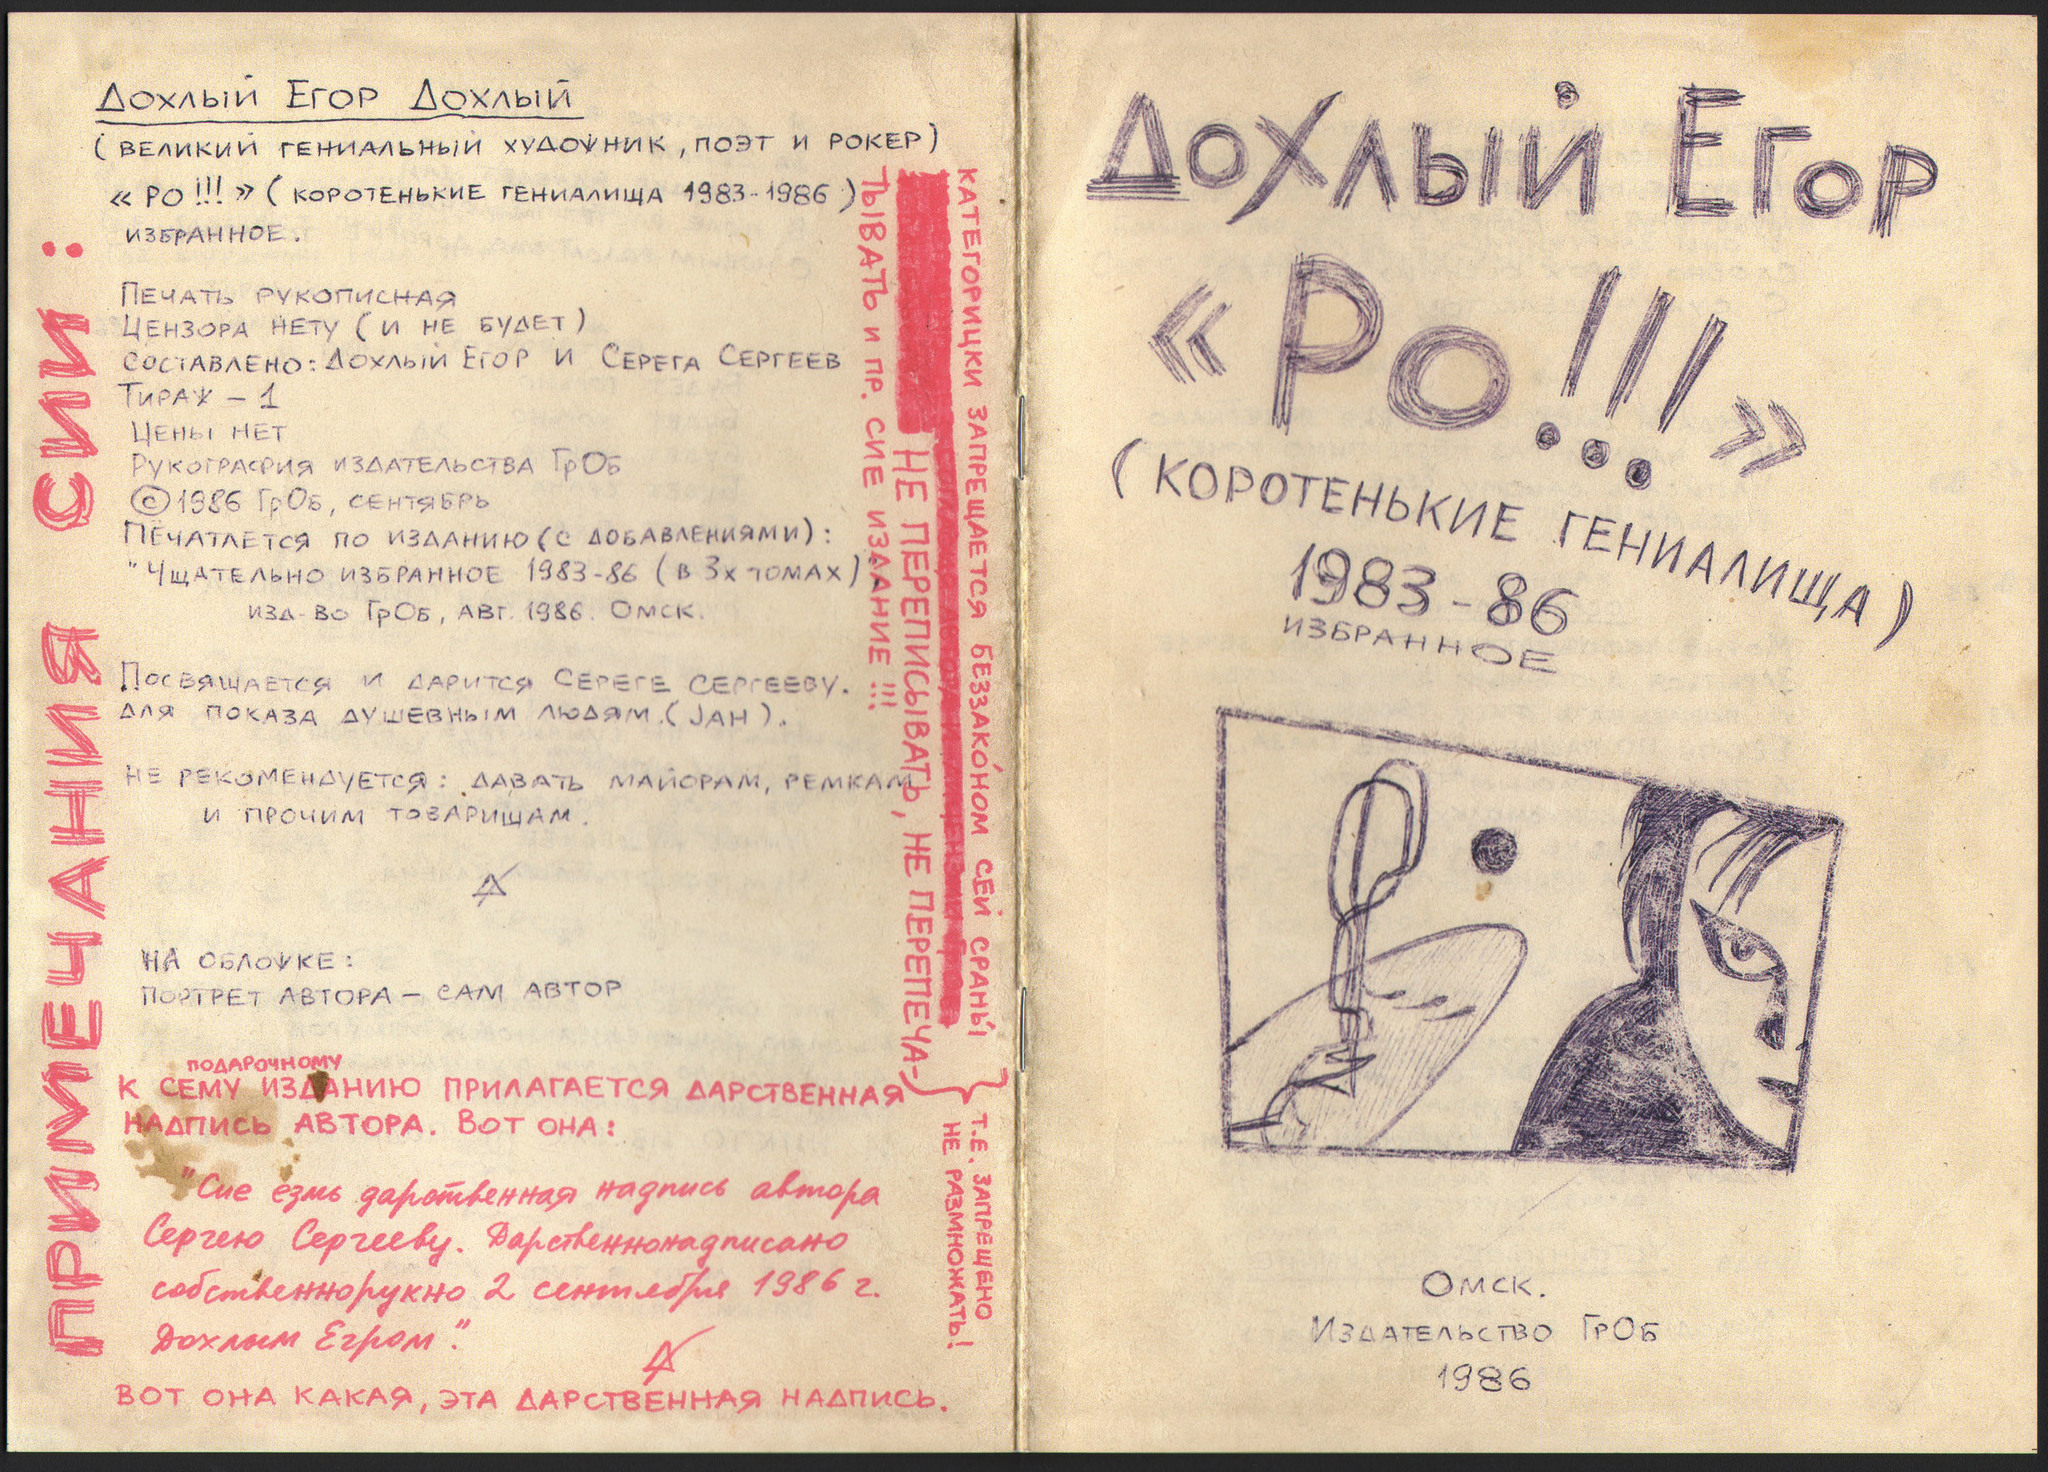 ПРИМЕЧАНИЯ СИИ:
Дохлый Егор Дохлый
(великий гениальный художник, поэт и рокер)
«Ро!!!» (коротенькие гениалища 1983-1986)
избранное.
Печать рукописная
Цензора нету (и не будет)
Составлено: Дохлый Егор и Серега Сергеев
Тираж – 1
Цены нет
Рукография издательства ГрОб
©1986 ГрОб, сентябрь
Печатается по изданию (с добавлениями):
"Чщательно избранное 1983-86 (в 3х томах)
изд-во ГрОб, авг. 1986. Омск.
Посвящается и дарится Сереге Сергееву.
Для показа душевным людям. (Jah).
Не рекомендуется: давать майорам, ремкам
и прочим товарищам.
На обложке:
портрет автора – сам автор
подарочному
К сему изданию прилагается дарственная
надпись автора. Вот она:
"Сие езмь дарственная надпись автора
Сергею Сергееву. Дарственнонадписано
собственнорукно 2 сентября 1986 г.
Дохлым Егром".
Вот она какая, эта дарственная надпись.
КАТЕГОРИЦКИ ЗАПРЕЩАЕТСЯ БЕЗЗАКО́НОМ СЕЙ СРАНЫ́
НЕ ПЕРЕПИСЫВАТЬ, НЕ ПЕРЕПЕЧА-
ТЫВАТЬ И ПР. СИЕ ИЗДАНИЕ!!!
Т.Е. ЗАПРЕЩЕНО
НЕ РАЗМНОЖАТЬ!
Дохлый Егор
«Ро!!!»
(коротенькие гениалища)
1983-86
избранное
Омск.
Издательство ГрОб
1986